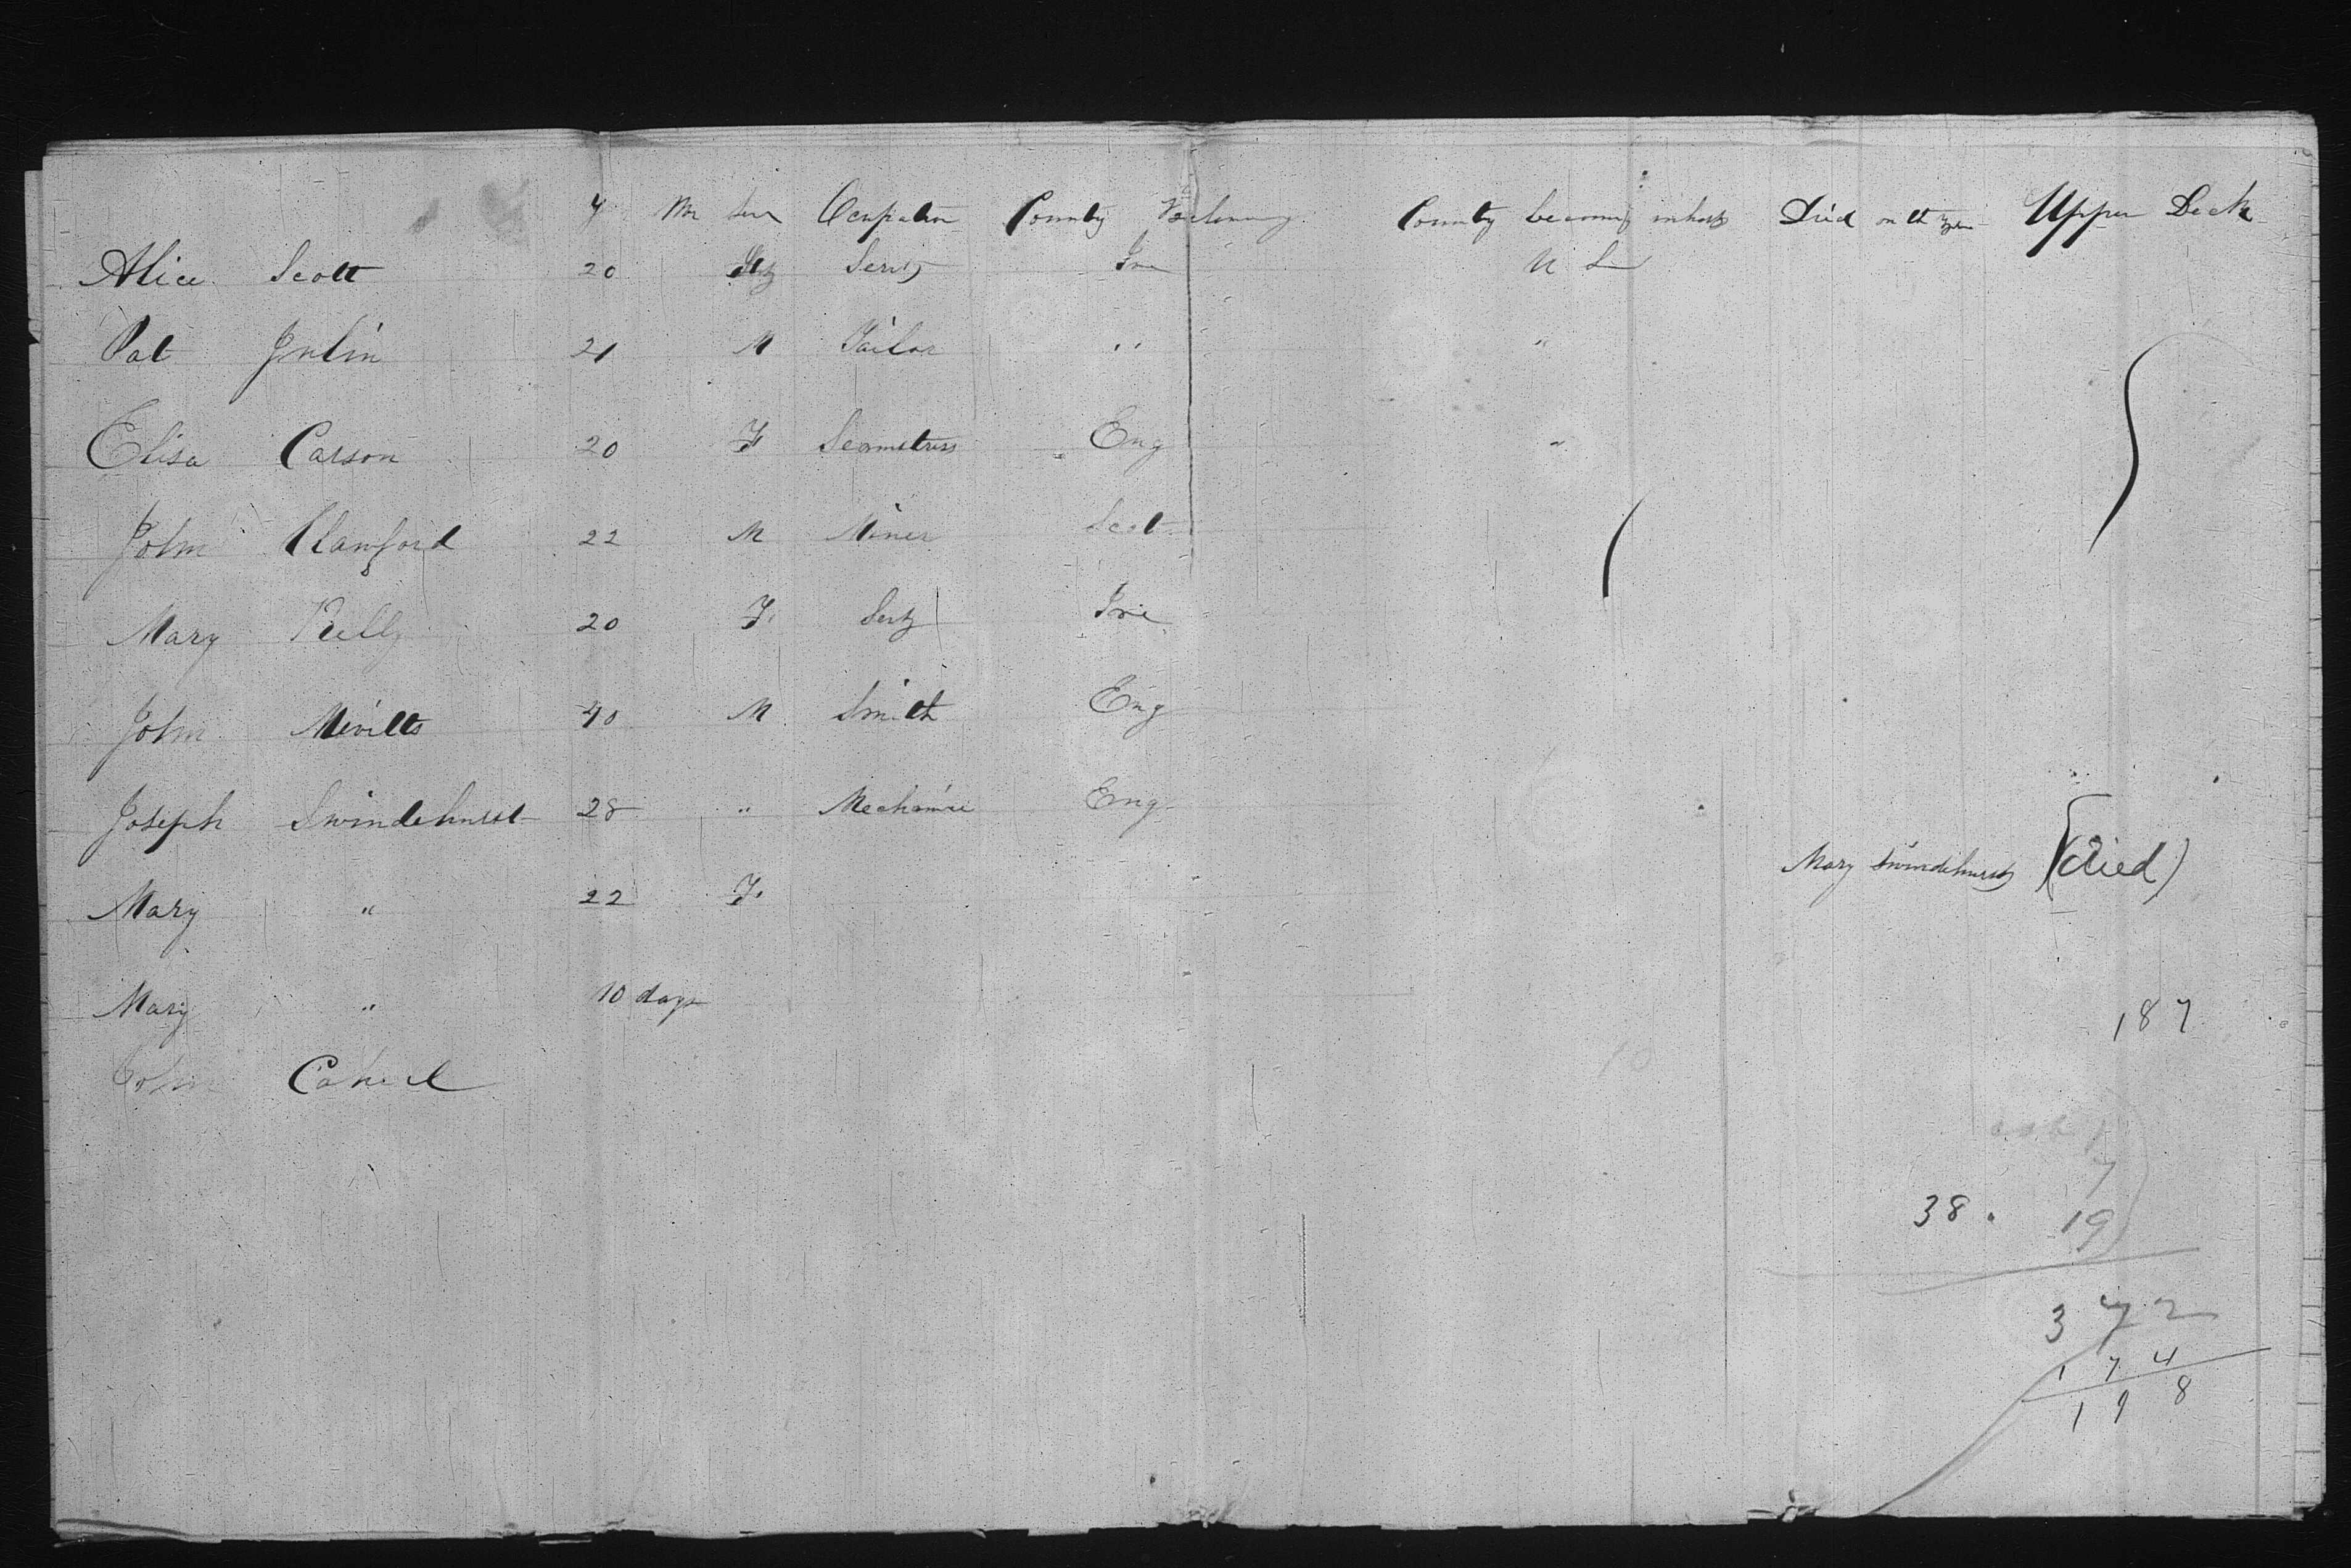 Y M Sex Ocupation County Belonging County becoming inhab Died on th Upper Deck
Alice Scott 20 F Servt Ire U S
Pat 21 M Tailor " "
Elisa Carson 20 F Seamstress Eng "
John Clanford 22 M Miner Scot
Mary Kelly 20 F. Servt Ire
John 40 M Smith Eng
Joseph Swindehurst 28 " Mechanic Eng
Mary Swindehurst (died)
Mary " 22 F.
Mary " 10 days
187
John Cahill
7
38. 19
372
174
198